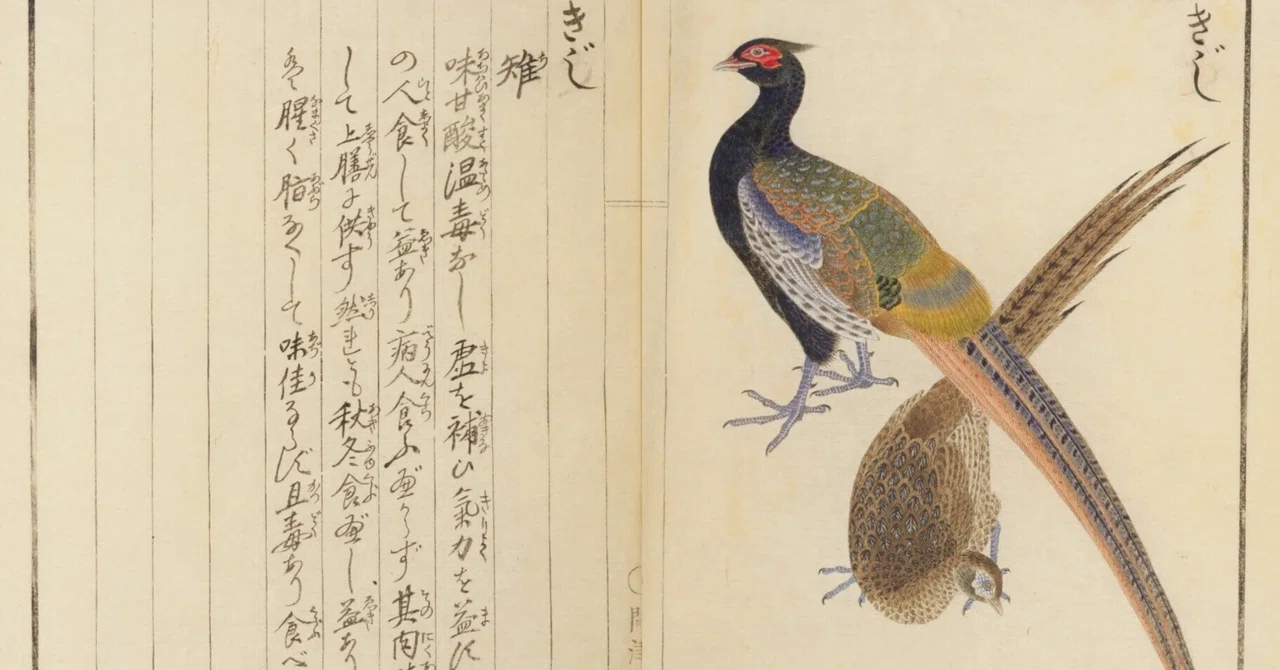 きゞし
きゞし
雉
味甘酸温毒なし 虚を補ひ氣力を益す
の人食して益あり病人食ふべからず其肉
して上膳に供す然れども秋冬食べし益あり
腥く脂なくして味佳ならず且毒あり食べ